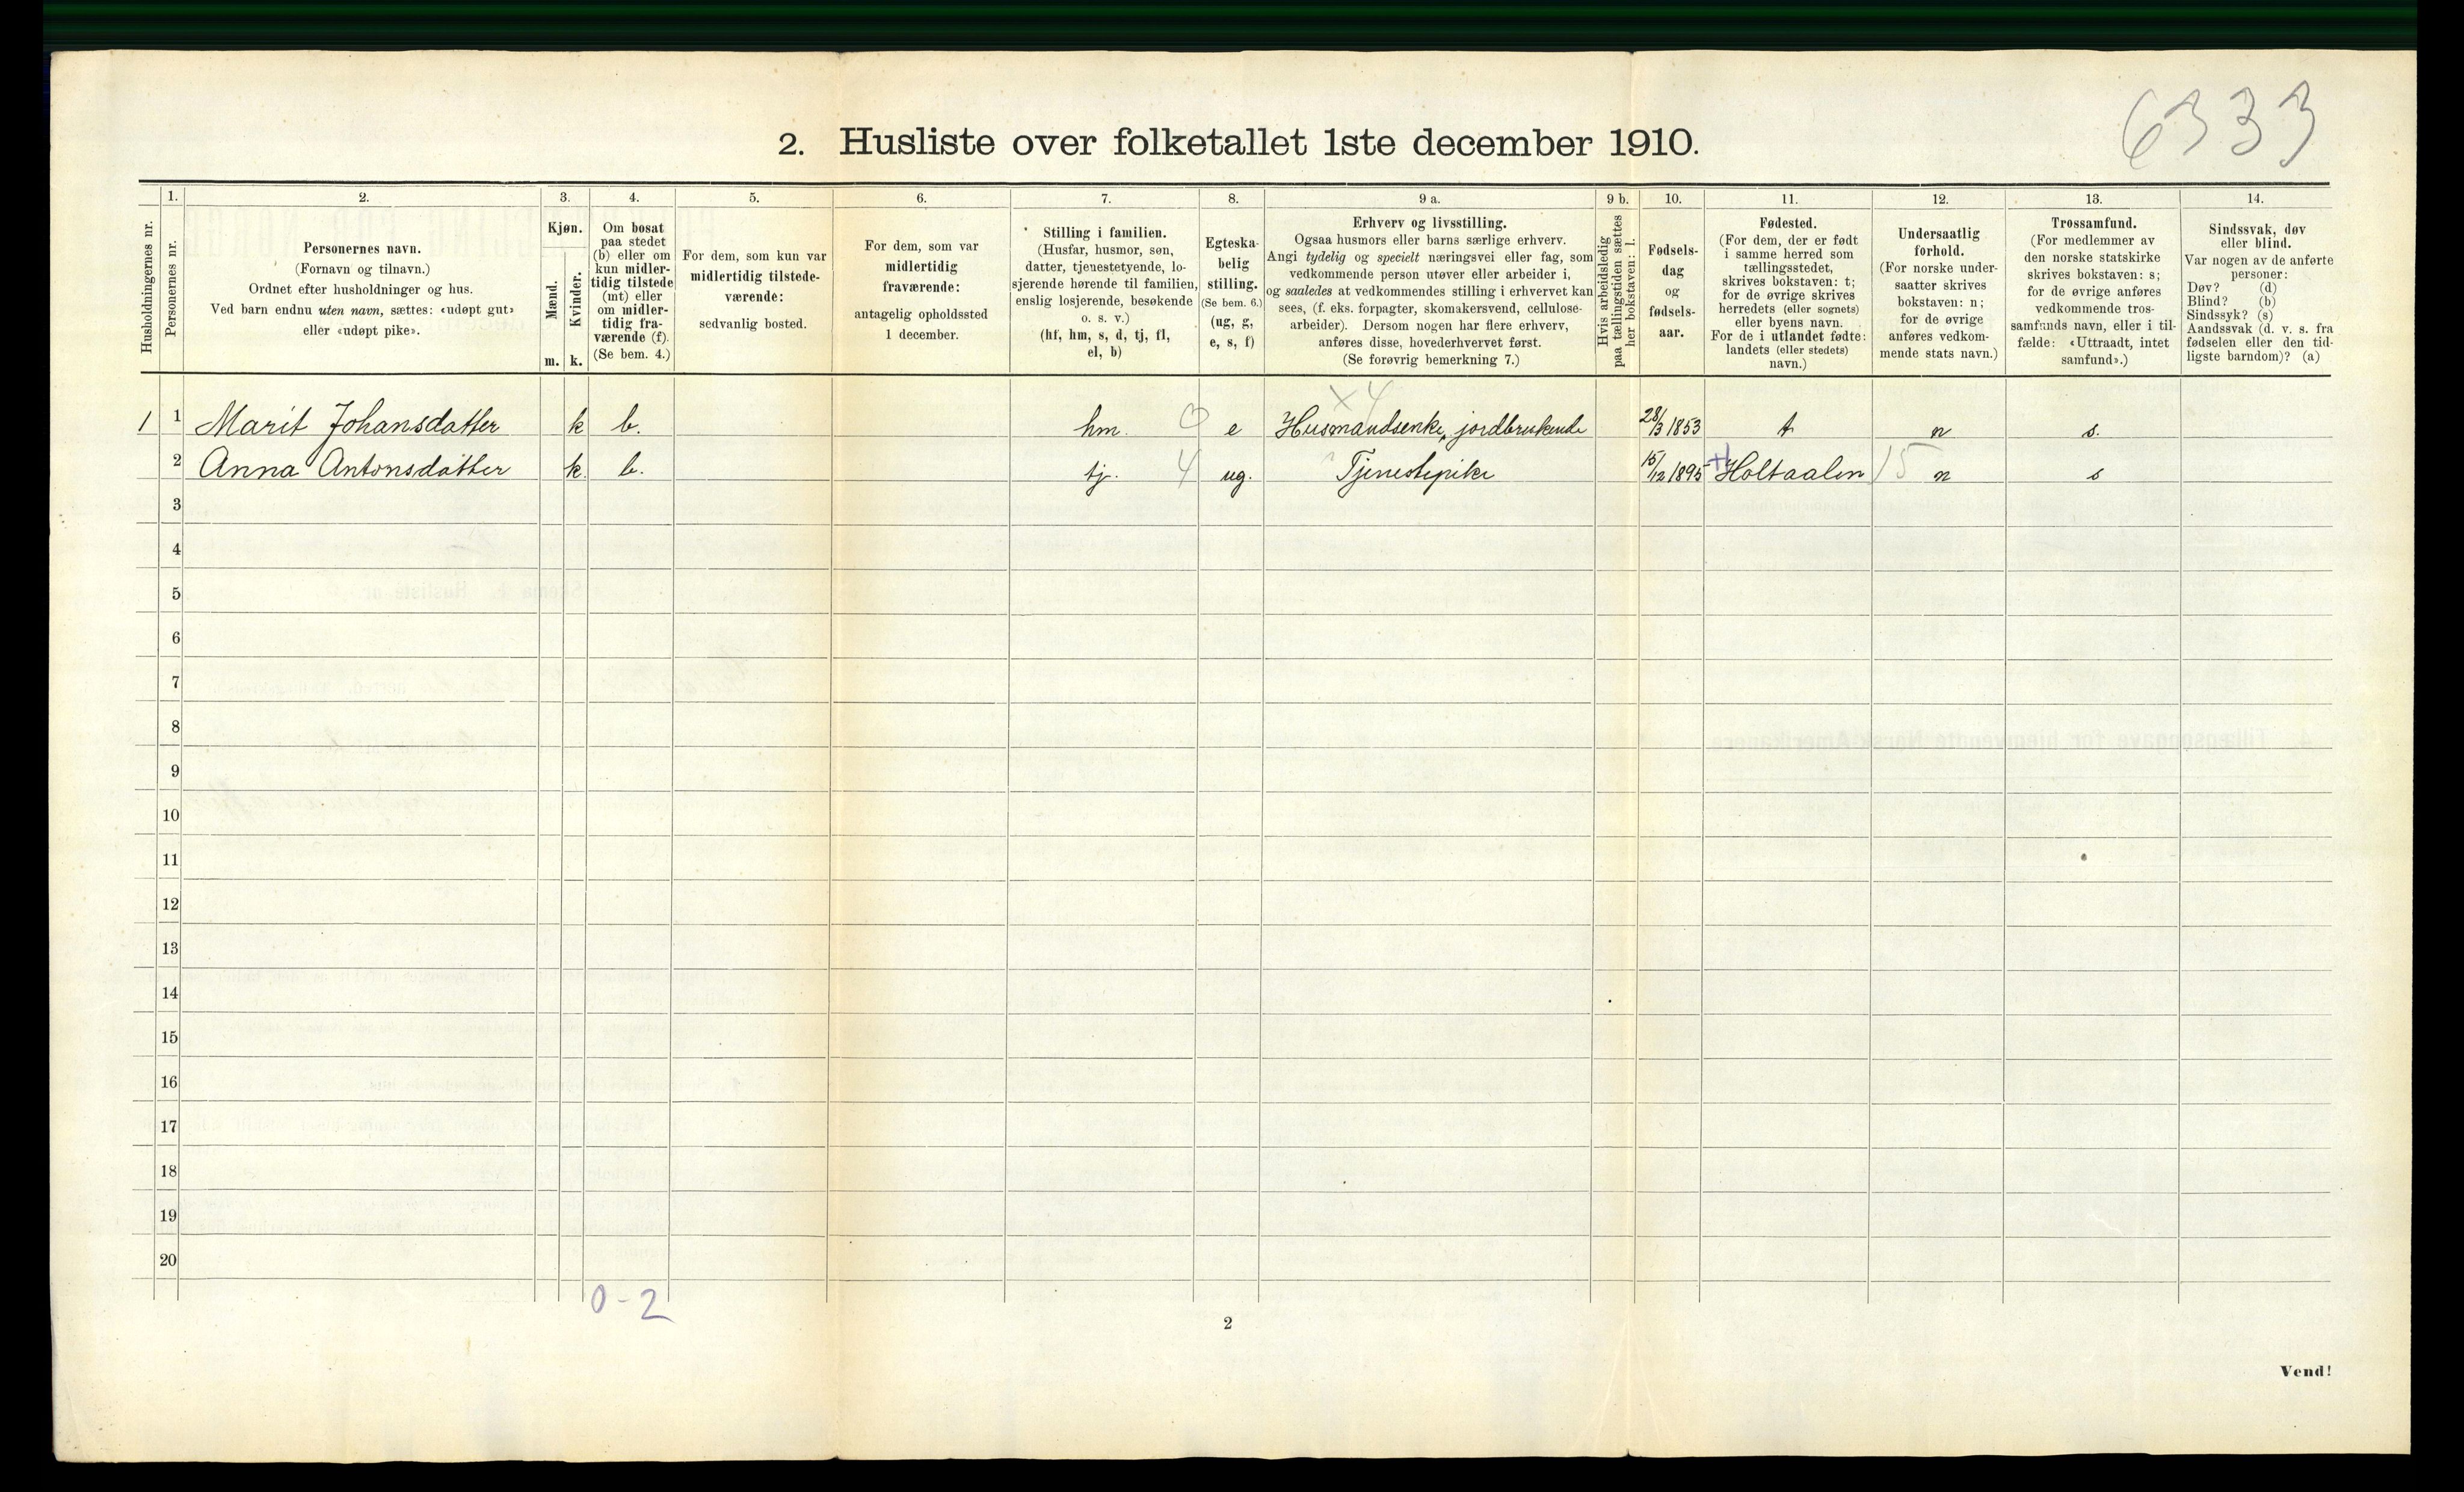 6333
2. Husliste over folketallet 1ste december 1910.
Husholdningernes nr.
1.
Personernes nr.
2.
Personernes navn.
(Fornavn og tilnavn.)
Ordnet efter husholdninger og hus.
Ved barn endnu uten navn, sættes: «udøpt gut»
eller «udøpt pike».
3.
Kjøn.
Mænd.
m.
Kvinder.
k.
4.
Om bosat
paa stedet
(b) eller om
kun midler-
tidig tilstede
(mt) eller
om midler-
tidig fra-
værende (f).
(Se bem. 4.)
5.
For dem, som kun var
midlertidig tilstede-
værende:
sedvanlig bosted.
6.
For dem, som var
midlertidig
fraværende:
antagelig opholdssted
1 december.
7.
Stilling i familien.
(Husfar, husmor, søn,
datter, tjenestetyende, lo-
sjerende hørende til familien,
enslig losjerende, besøkende
o. s. v.)
(hf, hm, s, d, tj, fl,
el, b)
8.
Egteska-
belig
stilling.
(Se bem. 6.)
(ug, g,
e, s, f)
9 a.
Erhverv og livsstilling.
Ogsaa husmors eller barns særlige erhverv.
Angi tydelig og specielt næringsvei eller fag, som
vedkommende person utøver eller arbeider i,
og saaledes at vedkommendes stilling i erhvervet kan
sees, (f. eks. forpagter, skomakersvend, cellulose-
arbeider). Dersom nogen har flere erhverv,
anføres disse, hovederhvervet først.
(Se forøvrig bemerkning 7.)
9 b.
Hvis arbeidsledig
paa tællingstiden sættes
her bokstaven: l.
10.
Fødsels-
dag
og
fødsels-
aar.
11.
Fødested.
(For dem, der er født
i samme herred som
tællingsstedet,
skrives bokstaven: t;
for de øvrige skrives
herredets (eller sognets)
eller byens navn.
For de i utlandet fødte:
landets (eller stedets)
navn.)
12.
Undersaatlig
forhold.
(For norske under-
saatter skrives
bokstaven: n;
for de øvrige
anføres vedkom-
mende stats navn.)
13.
Trossamfund.
(For medlemmer av
den norske statskirke
skrives bokstaven: s;
for de øvrige anføres
vedkommende tros-
samfunds navn, eller i til-
fælde: «Uttraadt, intet
samfund».)
14.
Sindssvak, døv
eller blind.
Var nogen av de anførte
personer:
Døv? (d)
Blind? (b)
Sindssyk? (s)
Aandssvak (d. v. s. fra
fødselen eller den tid-
ligste barndom)? (a)
x 4
1 1 Marit Johansdatter k b. hm. 0 e Husmandsenke, jordbrukende 28/3 1853 t n s.
2 Anna Antonsdatter k. b. tj. 4 ug. Tjenestepike 15/12 1895 + Holtaalen 15 n s
3
4
5
6
7
8
9
10
11
12
13
14
15
16
17
18
19
20
0 - 2
2
Vend!